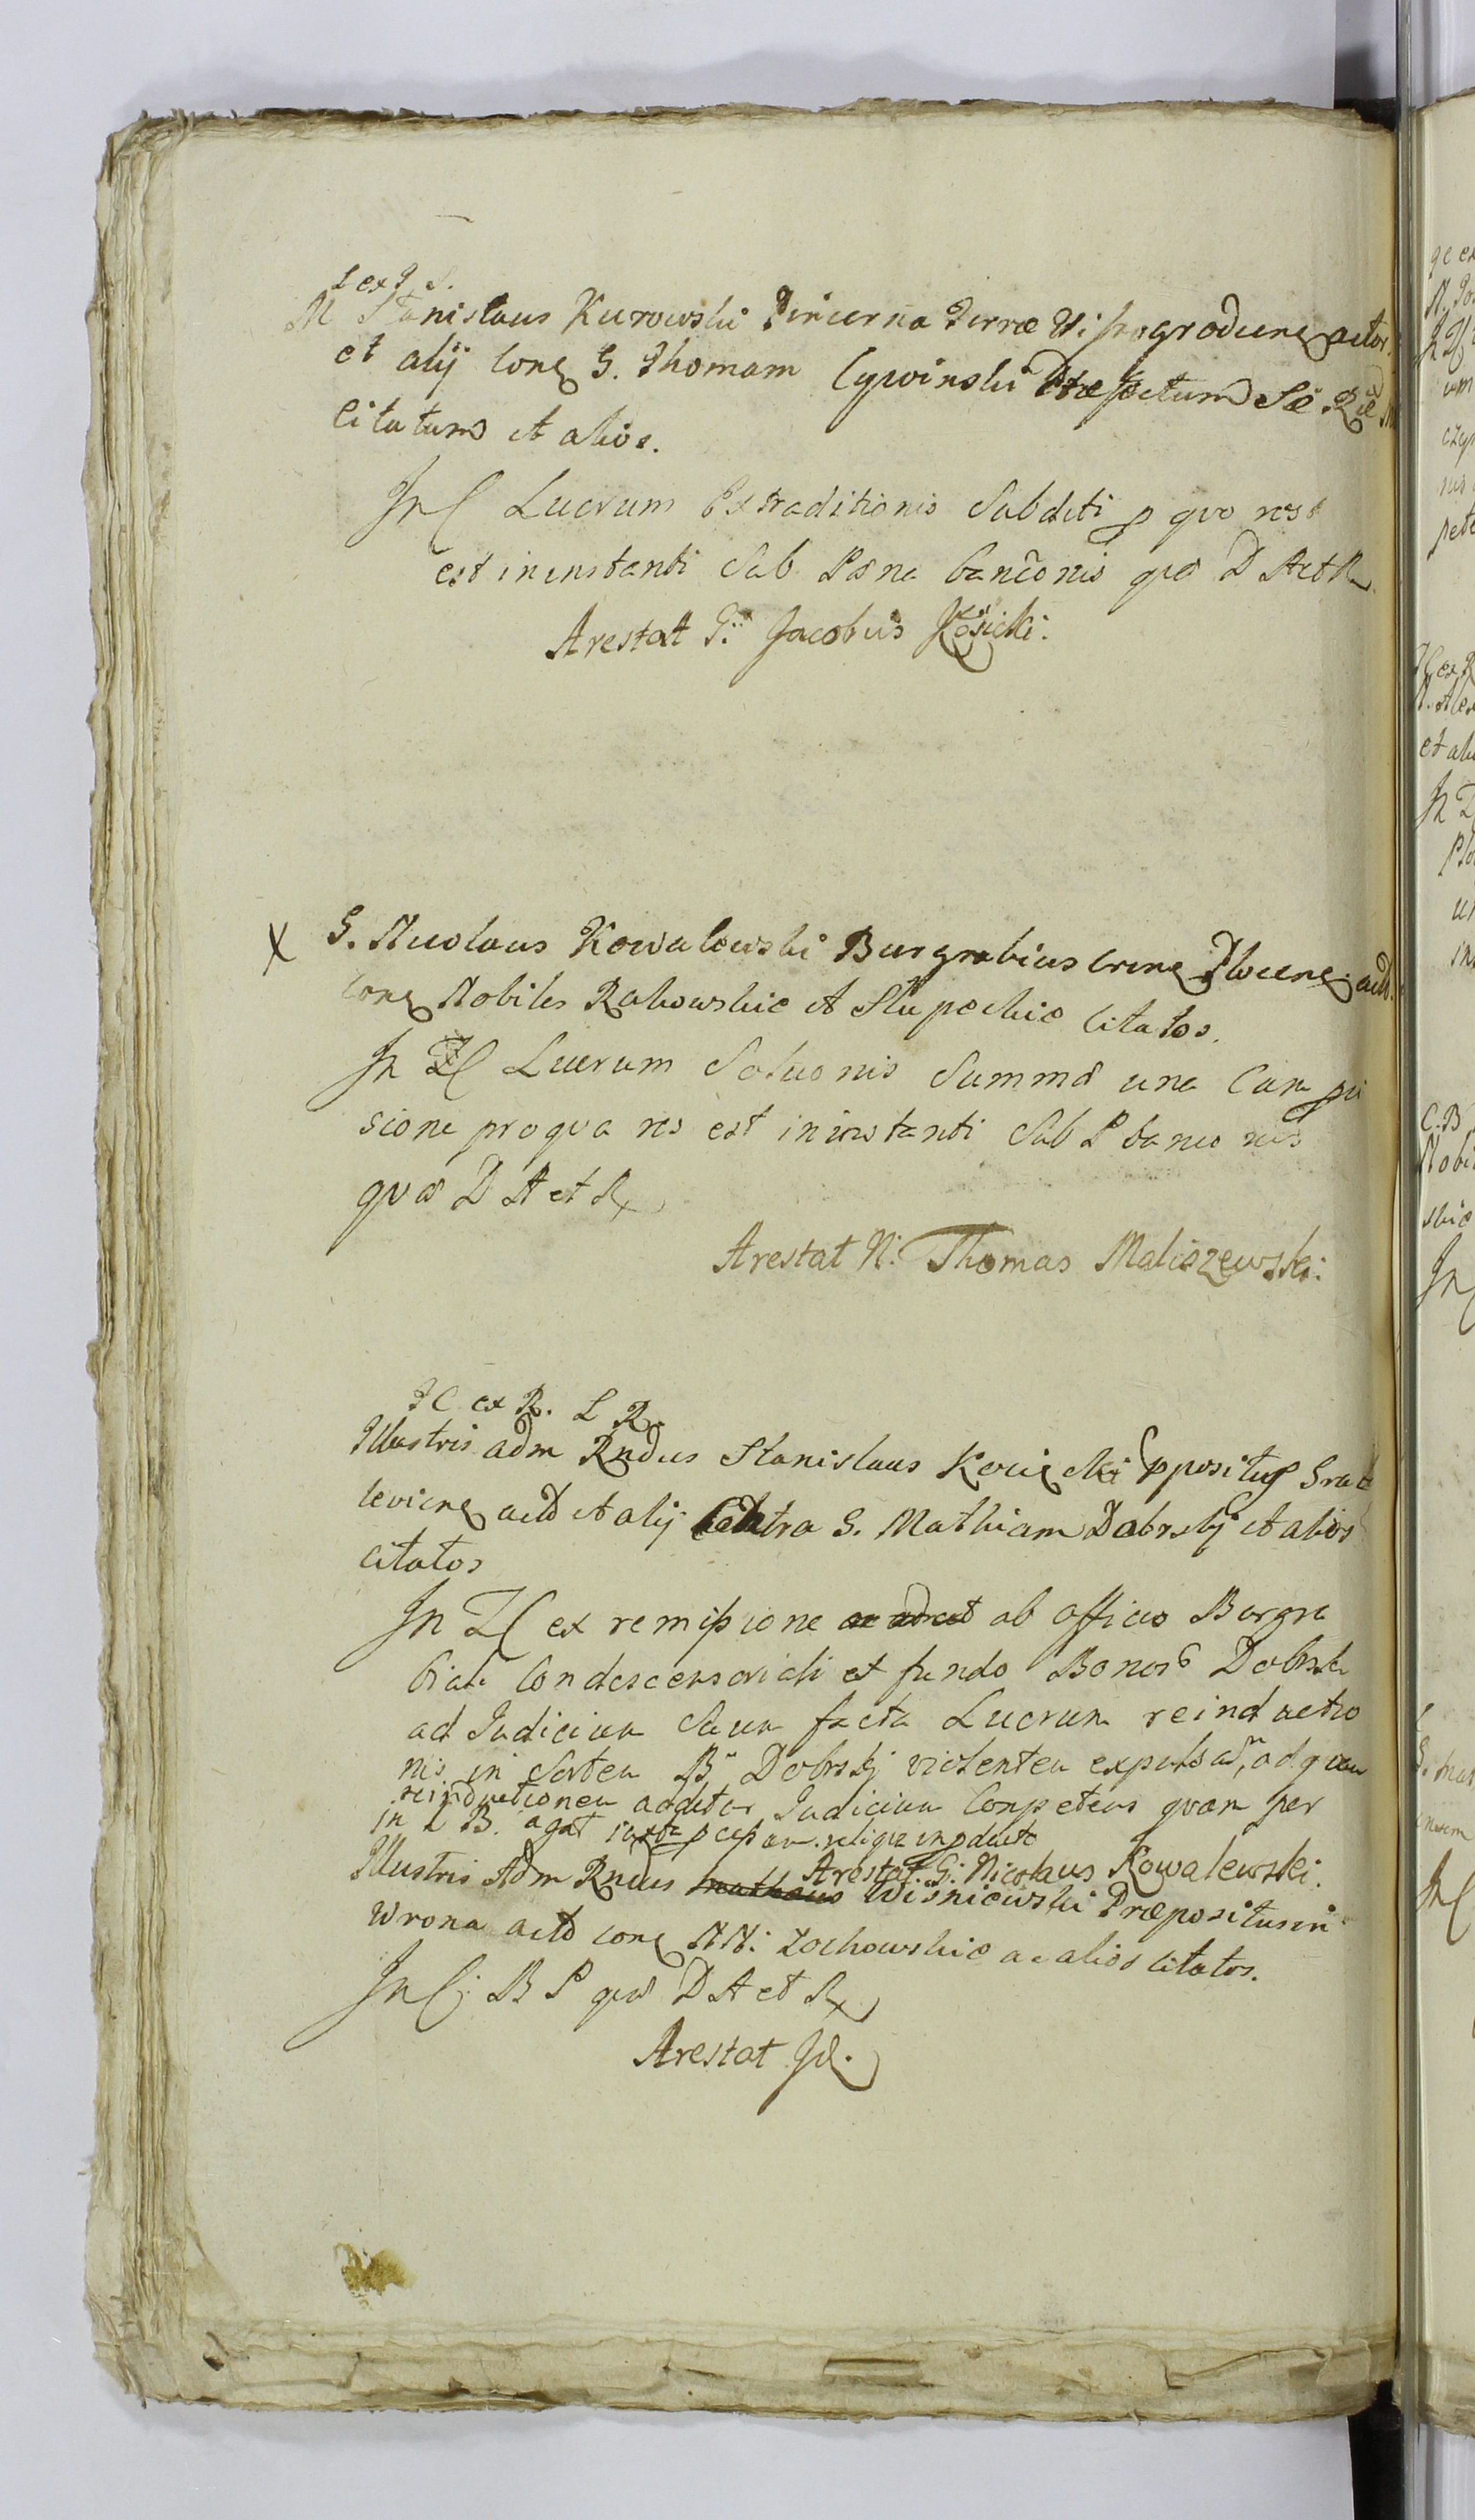 L ex P S.
M Stanislaus Kurowski Pincerna Terræ Wissogrodens actor
et alij Con G. Thomam Cywinski Præfectum Sæ Ræ M
Citatum et alios.
In C Lucrum Extraditionis Subditi p quo res
est in instanti Sub Pæna banconis qua D Act R
Arestat G. Jacobus Kosicki.
X G. Nicolaus Kowalewski Burgrabius Crens Plocens acto
Con Nobiles Rakowskie et Slupeckie Citatos.
In ZC Lucrum Soluonis Summæ una Cum pvi
sione pro qua res est in instanti Sub P banconis
qua D A et R
Arestat N. Thomas Maliszewski.
ZC ex R. L R.
Illustris adm Rndus Stanislaus ppositus Grad
levicens acto et alij Contra G. Mathiam Dobrskj et alios
citatos
In ZC ex remissione ab officio Burgra
biali Condescensoriali et fundo Bonor Dobrsk
ad Judicium Suum facta Lucrum reinductio
nis in Sortem B Dobrskj violenter expulsa, ad quam
reinductionem additur Judicium Competens quam per
in L B. agat
Arestat G. Nicolaus Kowalewski.
Illustris Adm Rndus Mathæus Wisniewski Præpositus in
Wrona acto con NN. Zochowskie ac alios Citatos.
In C. B P qua D A et R
Arestat Id.